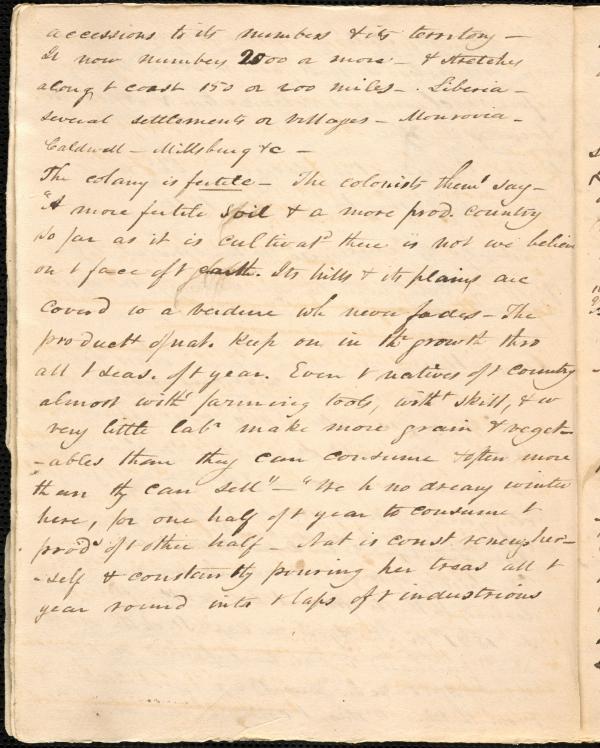 accessions to its numbers & its territory —
It now numbers 2000 or more — & stretches
along t coast 150 or 200 miles — . Liberia —
several settlements or villages — Monrovia —
Caldwell — Millsburg &c —
The colony is fertile — The colonists thems say —
"A more fertile soil & a more prod. country
so far as it is cultivatd there is not we believe
on t face of t earth. Its hills & its plains are
coverd w a verdure wh never fades — The
products of nat. keep on in thr growth thro
all t seas. of t year. Even t natives of t country
almost witht farming tools, witht skill, & w
very little labr make more grain & veget-
-ables than they can consume & often more
than thy can sell" — "We h no dreary winter
here, for one half of t year to consume t
prods of t other half — Nat is const renewg her-
-self & constantly pouring her treas all t
year round into t laps of t industrious